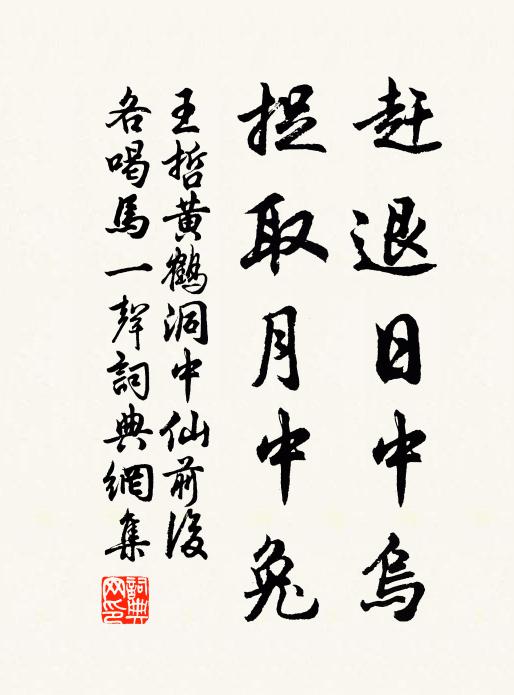 赶退日中烏
捉取月中兔
王哲黄鶴洞中仙前後
各喝馬一聲詞典網集
詞典